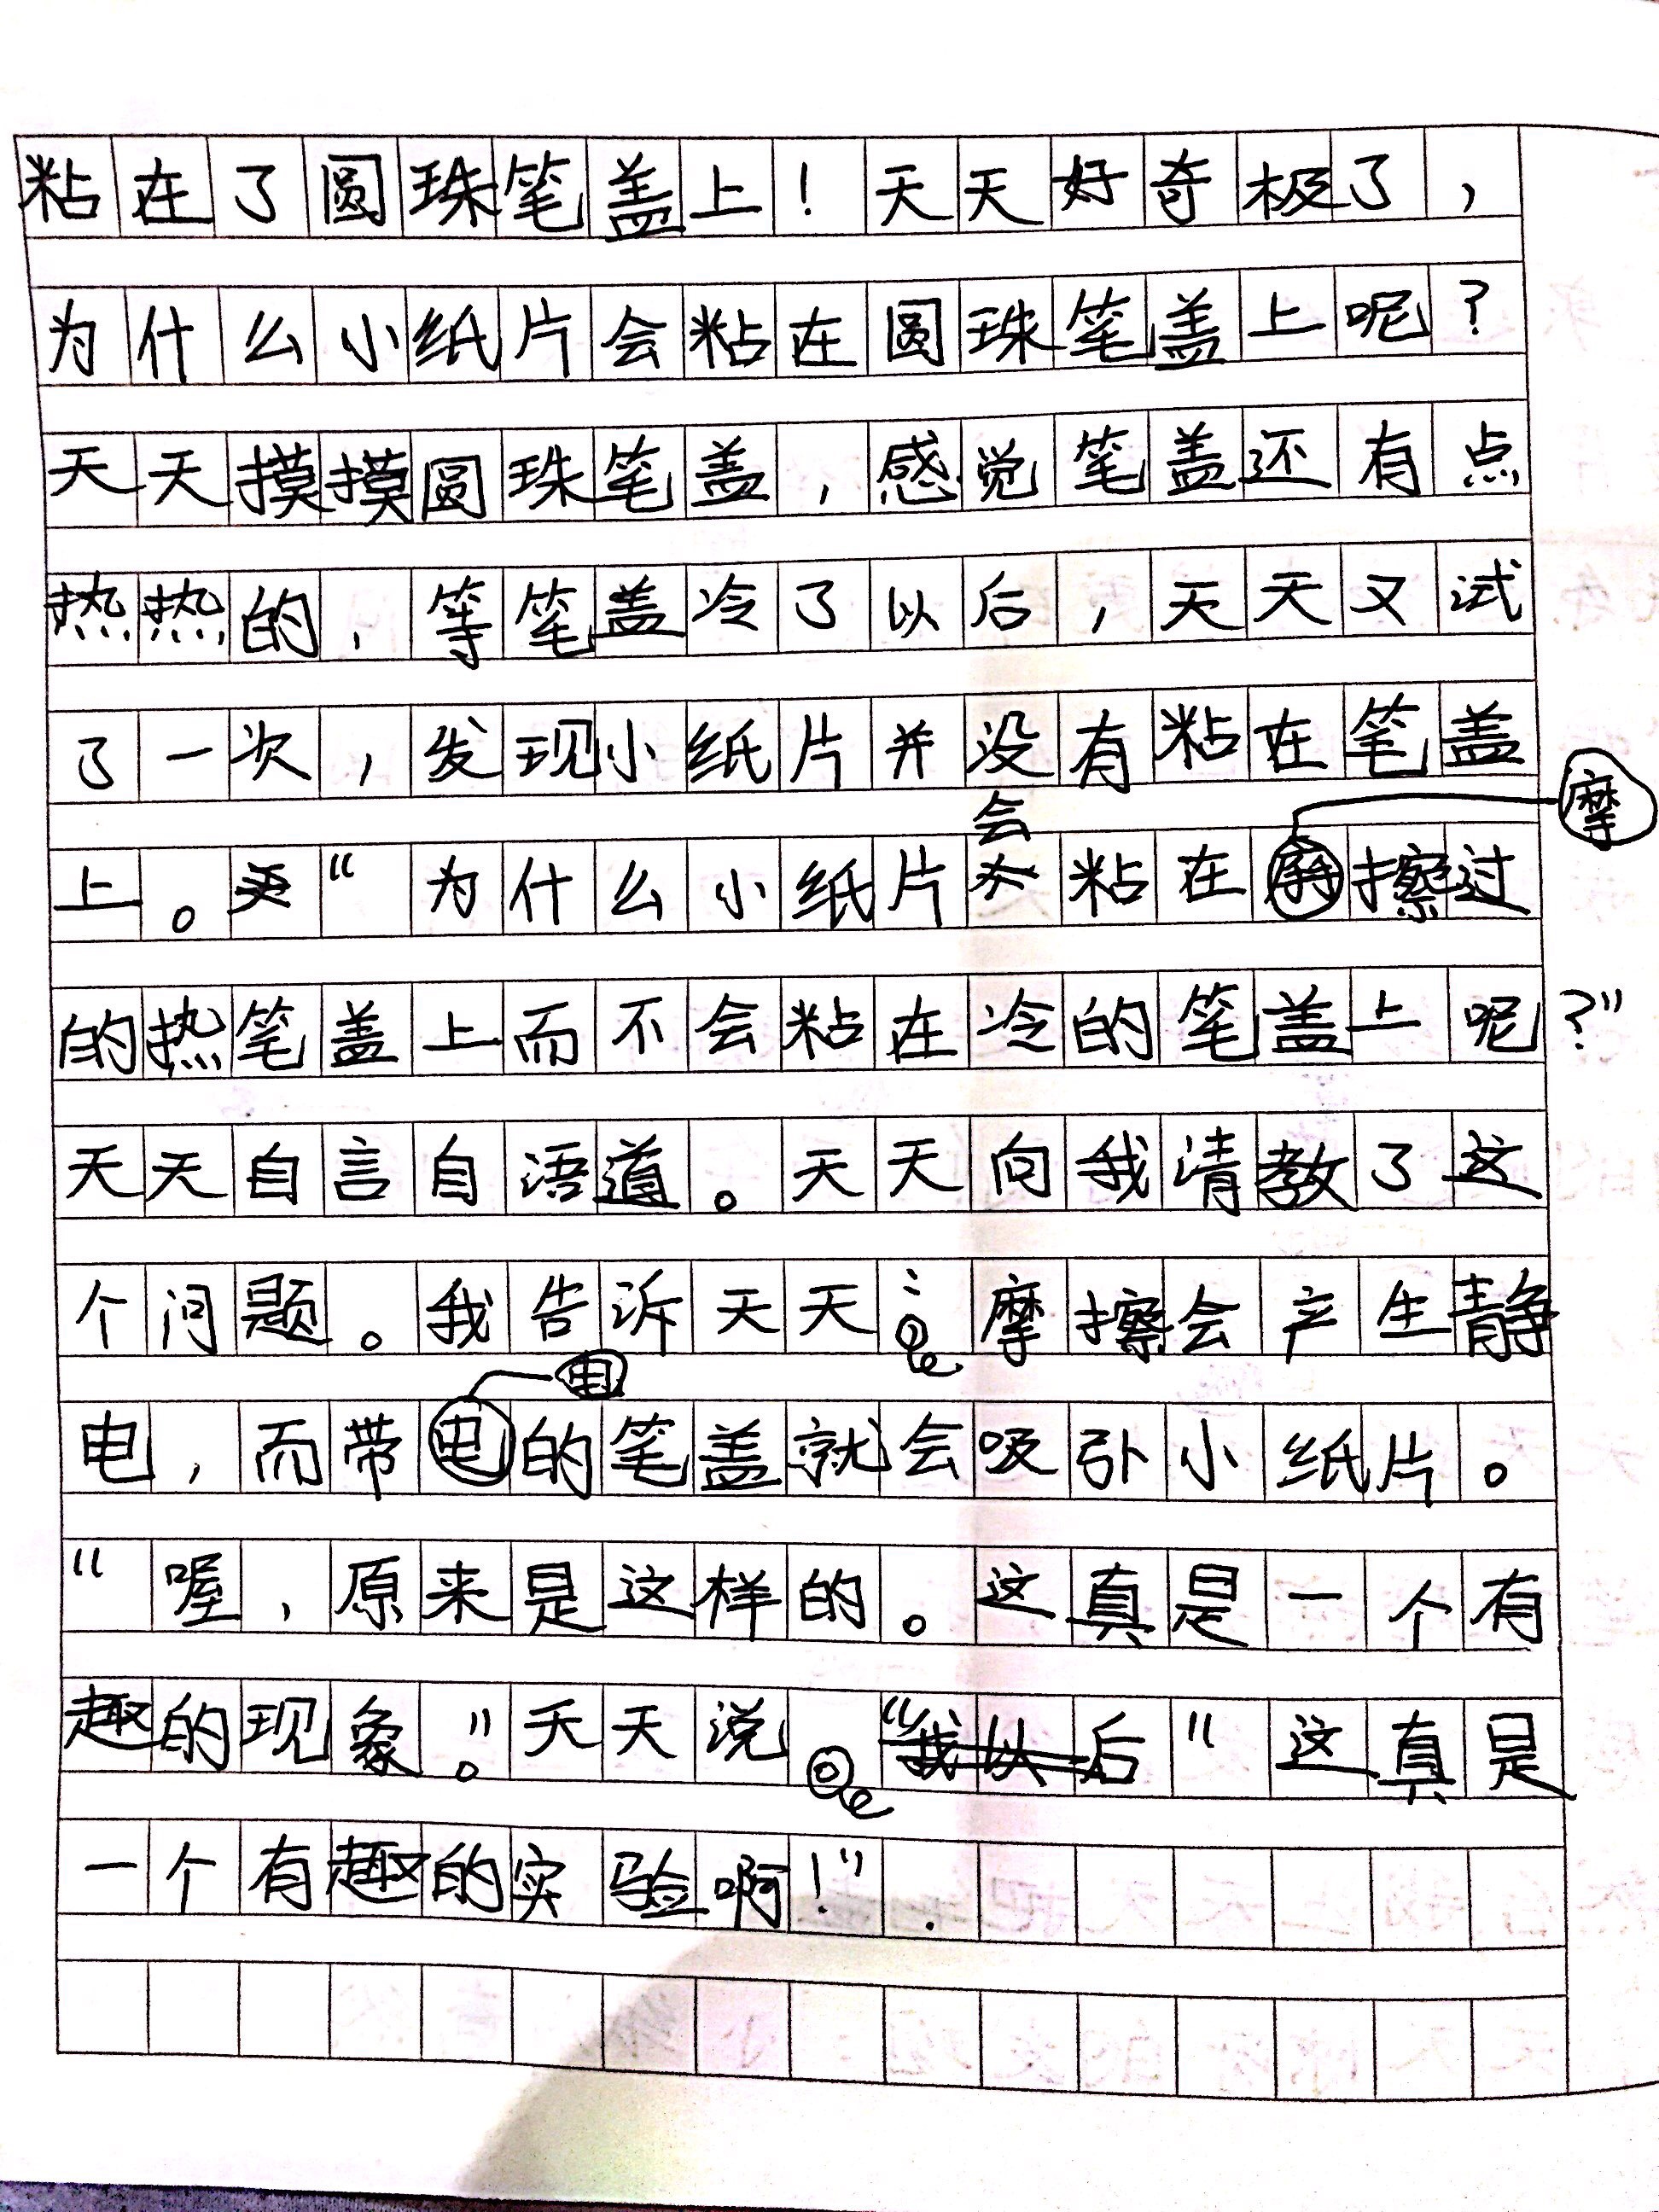 粘在了圆珠笔盖上！天天好奇极了，
为什么小纸片会粘在圆珠笔盖上呢？
天天摸摸圆珠笔盖，感觉笔盖还有点
热热的，等笔盖冷了以后，天天又试
了一次，发现小纸片并没有粘在笔盖
上。“为什么小纸片会粘在摩擦过
的热笔盖上而不会粘在冷的笔盖上呢？”
天天自言自语道。天天向我请教了这
个问题。我告诉天天：摩擦会产生静
电，而带电的笔盖就会吸引小纸片。
“喔，原来是这样的。这真是一个有
趣的现象。”天天说。“这真是
一个有趣的实验啊！”